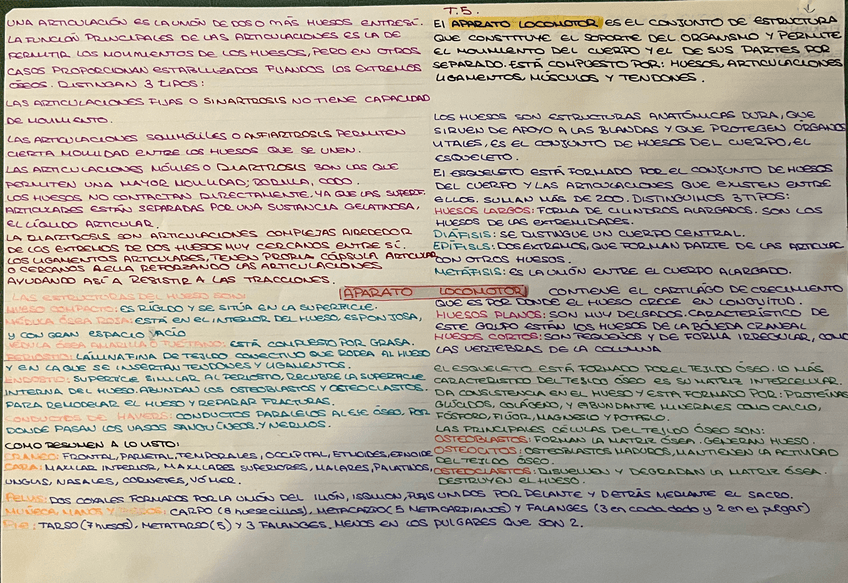 UNA ARTICULACIÓN ES LA UNIÓN DE DOS O MÁS HUESOS ENTRE SÍ.
LA FUNCIÓN PRINCIPALES DE LAS ARTICULACIONES ES LA DE
PERMITIR LOS MOVIMIENTOS DE LOS HUESOS, PERO EN OTROS
CASOS PROPORCIONAN ESTABILIZADOS FIJANDOS LOS EXTREMOS
ÓSEOS. DISTINGAN 3 TIPOS:
LAS ARTICULACIONES FIJAS O SINARTROSIS NO TIENE CAPACIDAD
DE MOVIMIENTO.
LAS ARTICULACIONES SEMIMÓVILES O ANFIARTROSIS PERMITEN
CIERTA MOVILIDAD ENTRE LOS HUESOS QUE SE UNEN.
LAS ARTICULACIONES MÓVILES O DIARTROSIS SON LAS QUE
PERMITEN UNA MAYOR MOVILIDAD; RODILLA, CODO.
LOS HUESOS NO CONTACTAN DIRECTAMENTE. YA QUE LAS SUPERF.
ARTICULARES ESTÁN SEPARADAS POR UNA SUSTANCIA GELATINOSA,
EL LÍQUIDO ARTICULAR.
LA DIARTROSIS SON ARTICULACIONES COMPLEJAS ALREDEDOR
DE LOS EXTREMOS DE DOS HUESOS MUY CERCANOS ENTRE SÍ.
LOS LIGAMENTOS ARTICULARES, TENEN PROPIA CÁPSULA ARTICULAR
O CERCANOS A ELLA REFORZANDO LAS ARTICULACIONES
AYUDANDO ASÍ A RESISTIR A LAS TRACCIONES.
T.5.
El APARATO LOCOMOTOR ES EL CONJUNTO DE ESTRUCTURA
QUE CONSTITUYE EL SOPORTE DEL ORGANISMO Y PERMITE
EL MOVIMIENTO DEL CUERPO Y EL DE SUS PARTES POR
SEPARADO. ESTÁ COMPUESTO POR: HUESOS, ARTICULACIONES
LIGAMENTOS, MÚSCULOS Y TENDONES.
LOS HUESOS SON ESTRUCTURAS ANATÓMICAS DURA, QUE
SIRVEN DE APOYO A LAS BLANDAS Y QUE PROTEGEN ÓRGANOS
VITALES, ES EL CONJUNTO DE HUESOS DEL CUERPO, EL
ESQUELETO.
El ESQUELETO ESTÁ FORMADO POR EL CONJUNTO DE HUESOS
DEL CUERPO Y LAS ARTICULACIONES QUE EXISTEN ENTRE
ELLOS. SUMAN MÁS DE 200. DISTINGUIMOS 3 TIPOS:
HUESOS LARGOS: FORMA DE CILINDROS ALARGADOS. SON LOS
HUESOS DE LAS EXTREMIDADES.
DIÁFISIS: SE DISTINGUE UN CUERPO CENTRAL.
EPÍFISIS: DOS EXTREMOS, QUE FORMAN PARTE DE LAS ARTICULAC
CON OTROS HUESOS.
METÁFISIS: ES LA UNIÓN ENTRE EL CUERPO ALARGADO.
APARATO LOCOMOTOR
CONTIENE EL CARTÍLAGO DE CRECIMIENTO
QUE ES POR DONDE EL HUESO CRECE EN LONGUITUD.
HUESOS PLANOS: SON MUY DELGADOS. CARACTERÍSTICO DE
ESTE GRUPO ESTÁN LOS HUESOS DE LA BÓVEDA CRANEAL
HUESOS CORTOS: SON PEQUEÑOS Y DE FORMA IRREGULAR, COMO
LAS VERTEBRAS DE LA COLUMNA
LAS ESTRUCTURAS DEL HUESO SON:
HUESO COMPACTO: ES RÍGIDO Y SE SITÚA EN LA SUPERFICIE.
MÉDULA ÓSEA ROJA: ESTÁ EN EL INTERIOR DEL HUESO, ESPONJOSA,
Y CON GRAN ESPACIO VACÍO
MÉDULA ÓSEA AMARILLA O TUÉTANO: ESTÁ COMPUESTO POR GRASA.
PERIOSTIO: LÁMINA FINA DE TEJIDO CONECTIVO QUE RODEA AL HUESO
Y EN LA QUE SE INSERTAN TENDONES Y LIGAMENTOS.
ENDOSTIO: SUPERFICIE SIMILAR AL PERIOSTO, RECUBRE LA SUPERFICIE
INTERNA DEL HUESO. ABUNDAN LOS OSTEOBLASTOS Y OSTEOCLASTOS.
PARA REMODELAR EL HUESO Y REPARAR FRACTURAS.
CONDUCTOS DE HAVERS: CONDUCTOS PARALELOS AL EJE ÓSEO, POR
DONDE PASAN LOS VASOS SANGUÍNEOS Y NERVIOS.
EL ESQUELETO ESTÁ FORMADO POR EL TEJIDO ÓSEO. LO MÁS
CARACTERÍSTICO DEL TEJIDO ÓSEO ES SU MATRIZ INTERCELULAR.
DA CONSISTENCIA EN EL HUESO Y ESTA FORMADO POR: PROTEÍNAS
GLÚCIDOS, COLÁGENO, Y ABUNDANTE MINERALES COMO CALCIO,
FÓSFORO, FLÚOR, MAGNESIO Y POTASIO.
LAS PRINCIPALES CÉLULAS DEL TEJIDO ÓSEO SON:
OSTEOBLASTOS: FORMAN LA MATRIZ ÓSEA. GENERAN HUESO.
OSTEOCITOS: OSTEOBLASTOS MADUROS, MANTIENEN LA ACTIVIDAD
DEL TEJIDO ÓSEO.
OSTEOCLASTOS: DISUELVEN Y DEGRADAN LA MATRIZ ÓSEA.
DESTRUYEN EL HUESO.
COMO RESUMEN A LO VISTO:
CRANEO: FRONTAL, PARIETAL, TEMPORALES, OCCIPITAL, ETMOIDES, EFNOIDE
CARA: MAXILAR INFERIOR, MAXILARES SUPERIORES, MALARES, PALATINOS,
UNGUIS, NASALES, CORNETES, VÓMER.
PELVIS: DOS COXALES FORMADOS POR LA UNIÓN DEL ILIÓN, ISQUION, PUBIS UNIDOS POR DELANTE Y DETRÁS MEDIANTE EL SACRO.
MUÑECA, MANOS Y DEDOS: CARPO (8 huesecillos), METACARPO (5 METACARDIANOS) Y FALANGES (3 en cada dedo y 2 en el pulgar)
PIE: TARSO (7 huesos), METATARSO (5) Y 3 FALANGES. MENOS EN LOS PULGARES QUE SON 2.